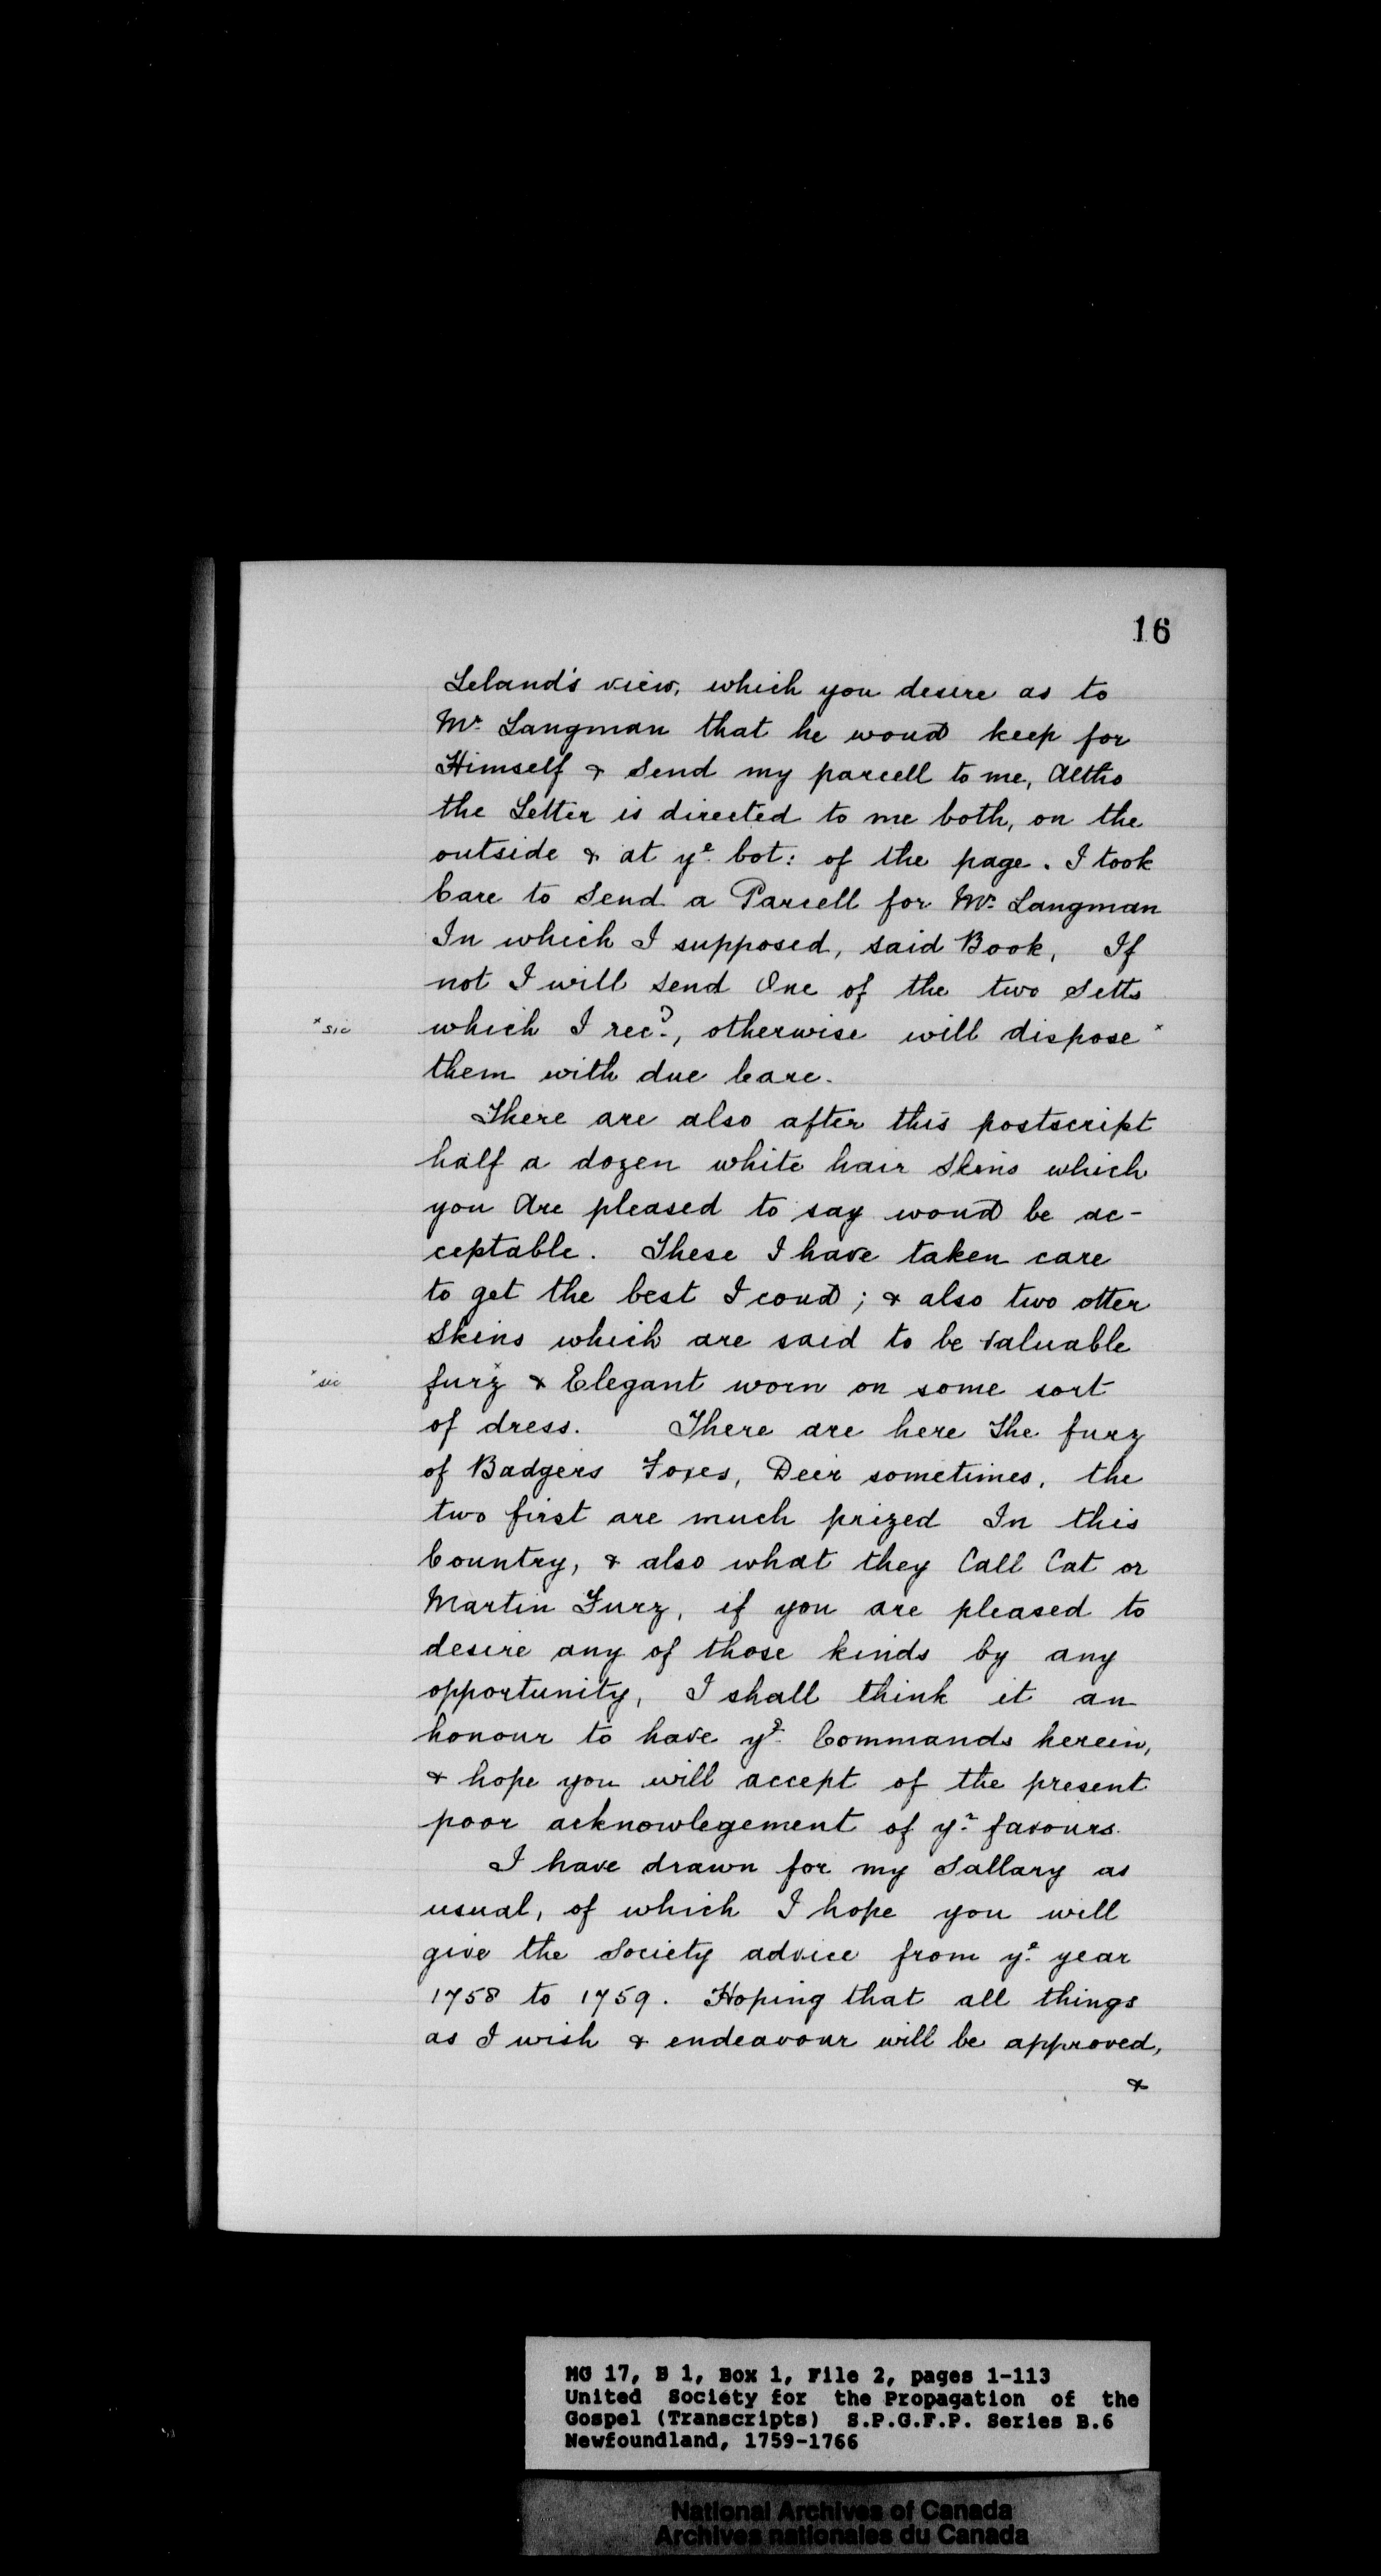 16
Leland's view, which you desire as to
Mr. Langman that he woud keep for
Himself & Send my parcell to me, Altho
the Letter is directed to me both, on the
outside & at ye. bot: of the page. I took
Care to Send a Parcell for Mr. Langman
In which I supposed, said Book, If
not I will send One of the two Setts
*sic which I recd., otherwise will dispose*
them with due Care.
There are also after this postscript
half a dozen white hair Skins which
you Are pleased to say woud be ac-
ceptable. These I have taken care
to get the best I coud; & also two otter
Skins which are said to be valuable
*sic furz* & Elegant worn on some sort
of dress. There are here The furz
of Badgers Foxes, Deer sometimes, the
two first are much prized In this
Country, & also what they Call Cat or
Martin Furz, if you are pleased to
desire any of those kinds by any
opportunity, I shall think it an
honour to have yr. Commands herein,
& hope you will accept of the present
poor acknowlegement of yr. favours.
I have drawn for my Sallary as
usual, of which I hope you will
give the Society advice from ye. year
1758 to 1759. Hoping that all things
as I wish & endeavour will be approved,
&
MG 17, B 1, Box 1, File 2, pages 1-113
United Society for the Propagation of the
Gospel (Transcripts) S.P.G.F.P. Series B.6
Newfoundland, 1759-1766
National Archives of Canada
Archives nationales du Canada